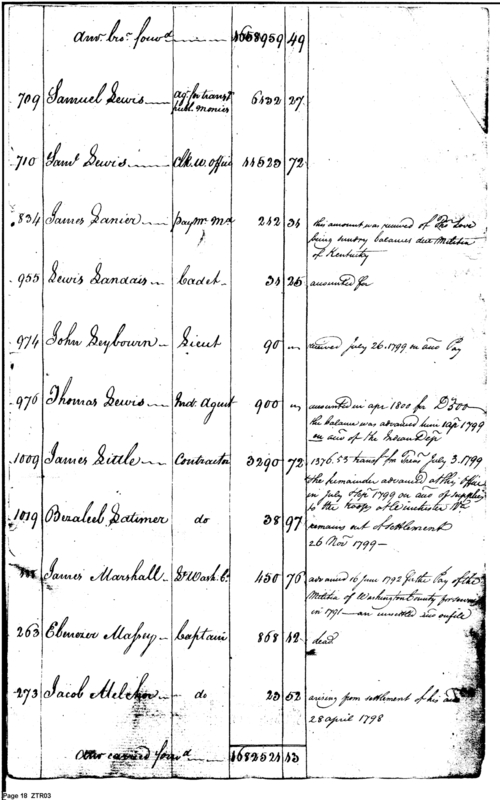 amo. bro. forwd. 1658959 49
709 Samuel Lewis agt. for transt. publ. monies 6432 27
710 Saml. Lewis clk. w. office 44523 72
834 James Lanier paymr. Ma 242 34 this amount was received of Thos. Love
being sundry balances due Militia
of Kentucky
955 Lewis Landais Cadet 34 25 accounted for
974 John Leybourn Lieut 90 received July 26. 1799 on acco. Pay
976 Thomas Lewis Ind. Agent 900 accounted in apr 1800 for D300
the balance was advanced him 1799
on acco. of the Indian Dep.
1009 James Little Contractor 3290 72 1376.53 transf. fm. Treas. July 3. 1799
the remainder advanced at this office
in July & Sepr. 1799 on acco. of supplies
to the troops at Winchester
1019 Bezaleel Latimer do 38 97 remains out of settlement
26 Novr. 1799
James Marshall Lt. Wash. Co. 450 76 advanced 16 June 1792 for the Pay of the
Militia of Washington County for services
in 1791 — an unsettled acco. on file
263 Ebenezer Massey Captain 868 42 dead
273 Jacob Melcher do 23 52 arising from settlement of his acco.
28 april 1798
amo. carried forwd. 1682524 43
Page 18 ZTR03